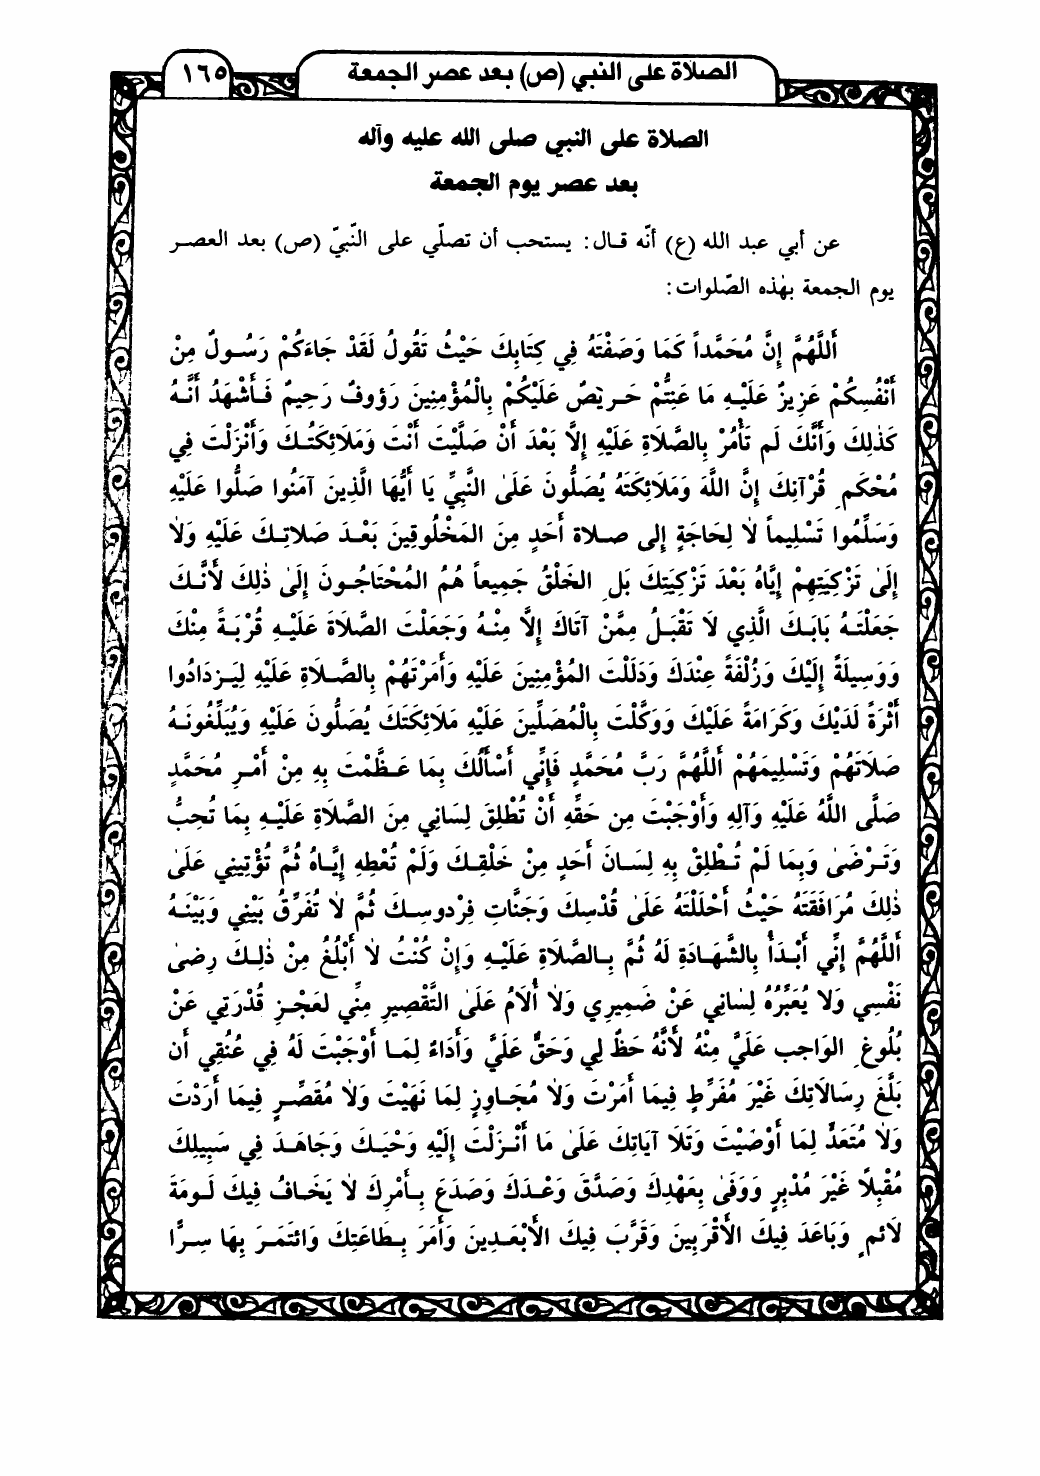 الصلاة على النبي (ص) بعد عصر الجمعة ١٦٥
الصلاة على النبي صلى الله عليه وآله
بعد عصر يوم الجمعة
عن أبي عبد الله (ع) أنّه قـال: يستحب أن تصلّي على النّبيّ (ص) بعد العصـر
يوم الجمعة بهٰذه الصّلوات:
أَللَّهُمَّ إِنَّ مُحَمَّداً كَمَا وَصَفْتَهُ فِي كِتَابِكَ حَيْثُ تَقُولُ لَقَدْ جَاءَكُمْ رَسُـولٌ مِنْ
أَنْفُسِكُمْ عَزِيزٌ عَلَيْـهِ مَا عَنِتُّمْ حَـرِيْصٌ عَلَيْكُمْ بِالْمُؤْمِنِينَ رَؤُوفٌ رَحِيمٌ فَـأَشْهَدُ أَنَّـهُ
كَذٰلِكَ وَأَنَّكَ لَم تَأْمُرْ بِالصَّلاَةِ عَلَيْهِ إِلاَّ بَعْدَ أَنْ صَلَّيْتَ أَنْتَ وَمَلَائِكَتُـكَ وَأَنْزَلْتَ فِي
مُحْكَمِ قُرْآنِكَ إِنَّ اللَّهَ وَمَلَائِكَتَهُ يُصَلُّونَ عَلَىٰ النَّبِيِّ يَا أَيُّهَا الَّذِينَ آمَنُوا صَلُّوا عَلَيْهِ
وَسَلِّمُوا تَسْلِيماً لاٰ لِحَاجَةٍ إِلى صـلاة أَحَدٍ مِنَ المَخْلُوقِينَ بَعْـدَ صَلاتِـكَ عَلَيْهِ وَلاٰ
إِلَىٰ تَزْكِيَتِهِمْ إِيَّاهُ بَعْدَ تَزْكِيَتِكَ بَلِ الخَلْقُ جَمِيعاً هُمُ المُحْتَاجُـونَ إِلَىٰ ذٰلِكَ لأَنَّـكَ
جَعَلْتَـهُ بَابَـكَ الَّذِي لاَ تَقْبَـلُ مِمَّنْ آتَاكَ إِلاَّ مِنْـهُ وَجَعَلْتَ الصَّلاَةَ عَلَيْـهِ قُرْبَـةً مِنْكَ
وَوَسِيلَةً إِلَيْكَ وَزُلْفَةً عِنْدَكَ وَدَلَلْتَ المُؤْمِنِينَ عَلَيْهِ وَأَمَرْتَهُمْ بِالصَّـلاَةِ عَلَيْهِ لِيَـزدَادُوا
أَثْرَةً لَدَيْكَ وَكَرَامَةً عَلَيْكَ وَوَكَّلْتَ بِالْمُصَلِّينَ عَلَيْهِ مَلاَئِكَتَكَ يُصَلُّونَ عَلَيْهِ وَيُبَلِّغُونَـهُ
صَلاَتَهُمْ وَتَسْلِيمَهُمْ أَللَّهُمَّ رَبَّ مُحَمَّدٍ فَإِنِّي أَسْأَلُكَ بِمَا عَـظَّمْتَ بِهِ مِنْ أَمْـرِ مُحَمَّدٍ
صَلَّى اللَّهُ عَلَيْهِ وَآلِهِ وَأَوْجَبْتَ مِن حَقِّهِ أَنْ تُطْلِقَ لِسَانِي مِنَ الصَّلاَةِ عَلَيْـهِ بِمَا تُحِبُّ
وَتَـرْضَىٰ وَبِمَا لَمْ تُـطْلِقْ بِهِ لِسَـانَ أَحَدٍ مِنْ خَلْقِـكَ وَلَمْ تُعْطِهِ إِيَّـاهُ ثُمَّ تُؤْتِينِي عَلَىٰ
ذٰلِكَ مُرَافَقَتَهُ حَيْثُ أَحْلَلْتَهُ عَلَىٰ قُدْسِكَ وَجَنَّاتِ فِرْدوسِـكَ ثُمَّ لاٰ تُفَرِّقُ بَيْنِي وَبَيْنَـهُ
أَللَّهُمَّ إِنِّي أَبْـدَأُ بِالشَّهَـادَةِ لَهُ ثُمَّ بِـالصَّلاَةِ عَلَيْـهِ وَإِنْ كُنْتُ لاٰ أَبْلُغُ مِنْ ذٰلِـكَ رِضىٰ
نَفْسِي وَلاٰ يُعَبِّرُهُ لِسَانِي عَنْ ضَمِيرِي وَلاٰ أُلَامُ عَلَىٰ التَّقْصِيرِ مِنِّي لعَجْـزِ قُدْرَتِي عَنْ
بُلُوغِ الوَاجب عَلَيَّ مِنْهُ لأَنَّهُ حَظٌّ لِي وَحَقٌّ عَلَيَّ وَأَدَاءٌ لِمَـا أَوْجَبْتَ لَهُ فِي عُنُقِي أَن
بَلَّغَ رِسَالاَتِكَ غَيْرَ مُفَرِّطٍ فِيمَا أَمَرْتَ وَلاٰ مُجَـاوِزٍ لِمَا نَهَيْتَ وَلاٰ مُقَصِّـرٍ فِيمَا أَرَدْتَ
وَلاٰ مُتَعَدٍّ لِمَا أَوْصَيْتَ وَتَلاَ آيَاتِكَ عَلَىٰ مَا أَنْـزَلْتَ إِلَيْهِ وَحْيَـكَ وَجَاهَـدَ فِي سَبِيلِكَ
مُقْبِلاً غَيْرَ مُدْبِرٍ وَوَفَىٰ بِعَهْدِكَ وَصَدَّقَ وَعْـدَكَ وَصَدَعَ بِـأَمْرِكَ لاٰ يَخَـافُ فِيكَ لَـومَةَ
لاَئمٍ وَبَاعَدَ فِيكَ الأَقْرَبِينَ وَقَرَّبَ فِيكَ الأَبْعَـدِينَ وَأَمَرَ بِـطَاعَتِكَ وَائتَمَـرَ بِهَا سِـرًّا